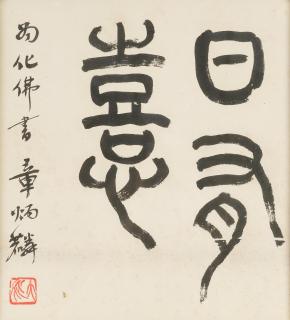 日有
憙
為化佛書章炳麟